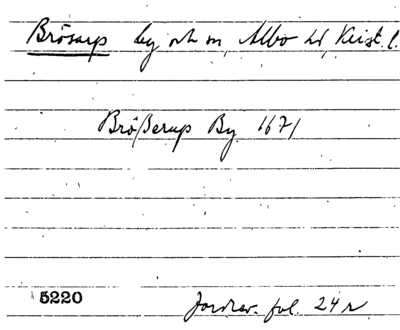 Brösarp by och sn, Albo hd, Krist. l.
Bröszerup By 1671
5220
Jordrev. fol. 24 r